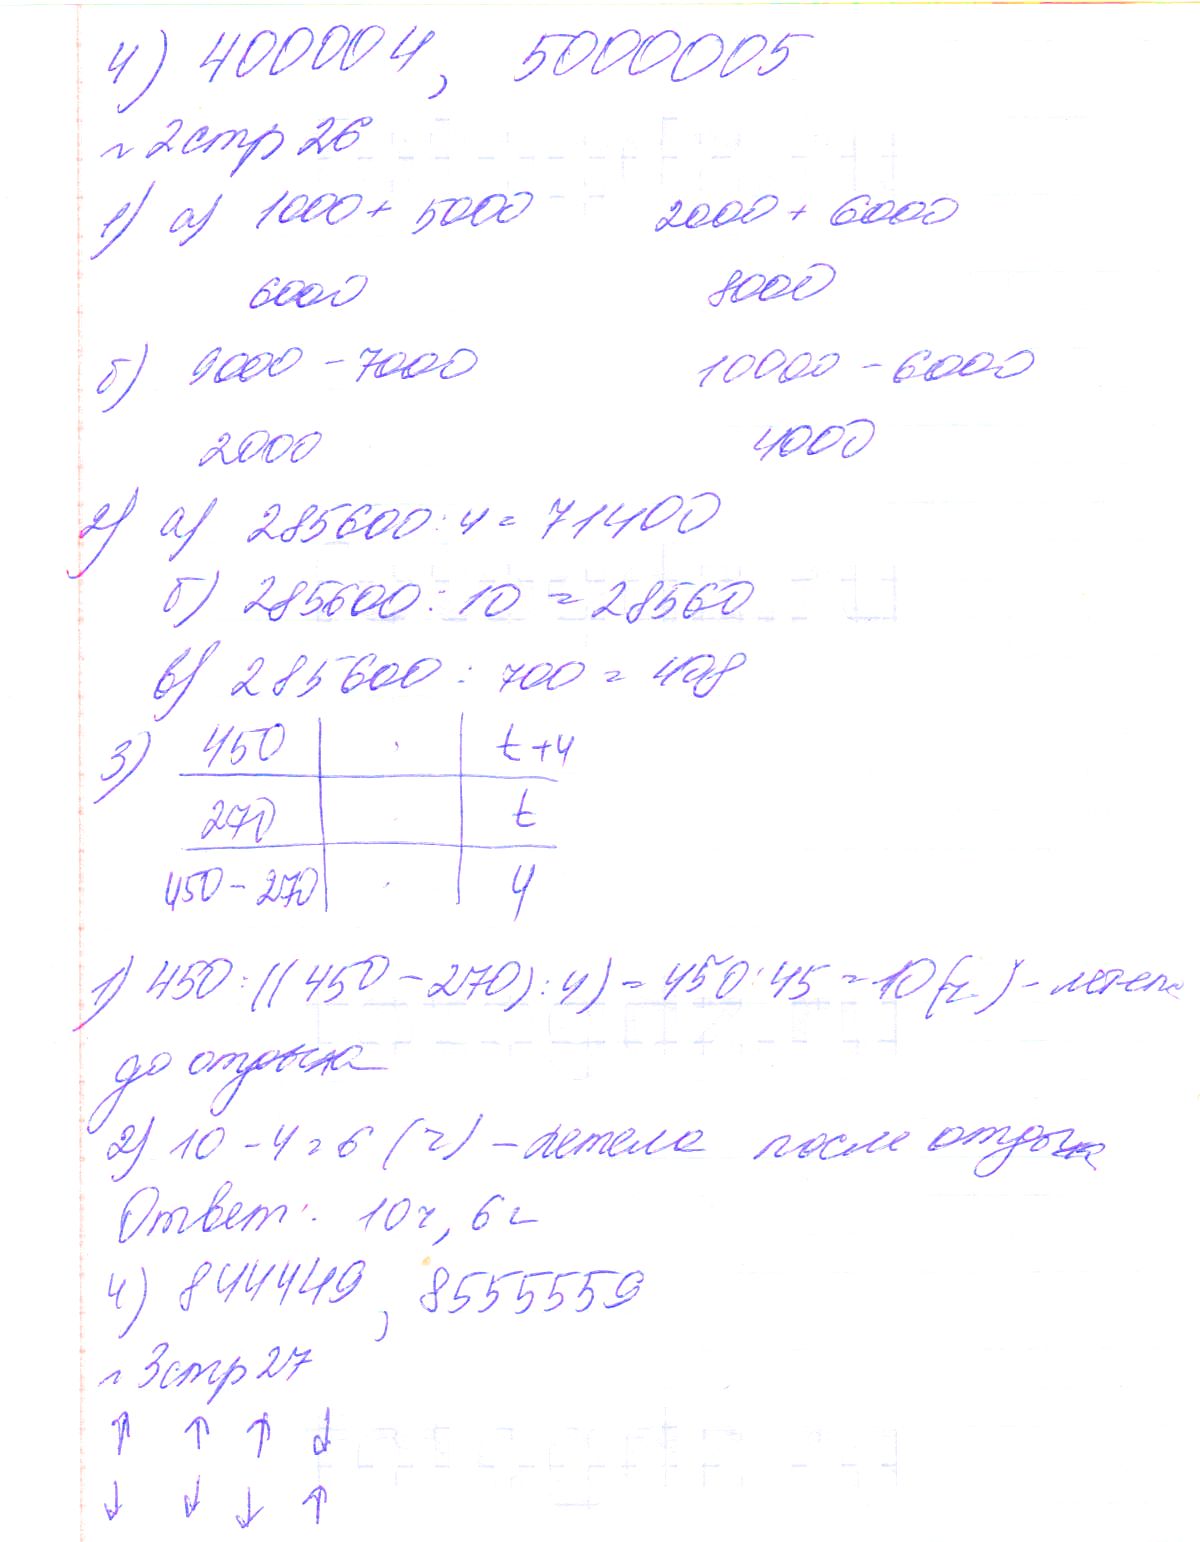 4) 400004, 5000005
№2 стр 26
1) а) 1000 + 5000 2000 + 6000
6000 8000
б) 9000 - 7000 10000 - 6000
2000 4000
2) а) 285600 : 4 = 71400
б) 285600 : 10 = 28560
в) 285600 : 700 = 408
3) 450 t+4
270 t
450 - 270 4
1) 450 : ((450 - 270) : 4) = 450 : 45 = 10 (ч.) - летела
до отдыха
2) 10 - 4 = 6 (ч) - летела после отдыха
Ответ: 10ч, 6ч
4) 844449, 8555559
№3 стр 27
↑ ↑ ↑ ↓
↓ ↓ ↓ ↑